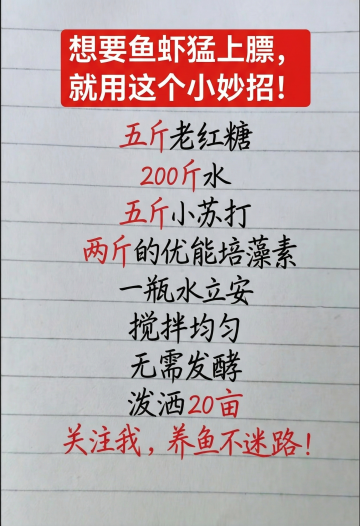 想要鱼虾猛上膘，
就用这个小妙招！
五斤老红糖
200斤水
五斤小苏打
两斤的优能培藻素
一瓶水立安
搅拌均匀
无需发酵
泼洒20亩
关注我，养鱼不迷路！